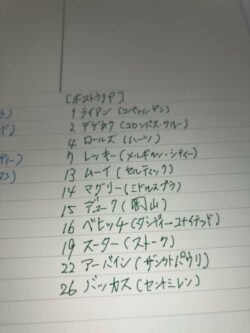 [オーストラリア]
1 ライアン(コペンハーゲン)
2 デゲネク(コロンバス・クルー)
4 ロールズ(ハーツ)
7 レッキー(メルボルン・シティー)
13 ムーイ(セルティック)
14 マグリー(ミドルスブラ)
15 デューク(岡山)
16 ベヒッチ(ダンディー・ユナイテッド)
19 スーター(ストーク)
22 アーバイン(ザンクトパウリ)
26 バッカス(セントミレン)